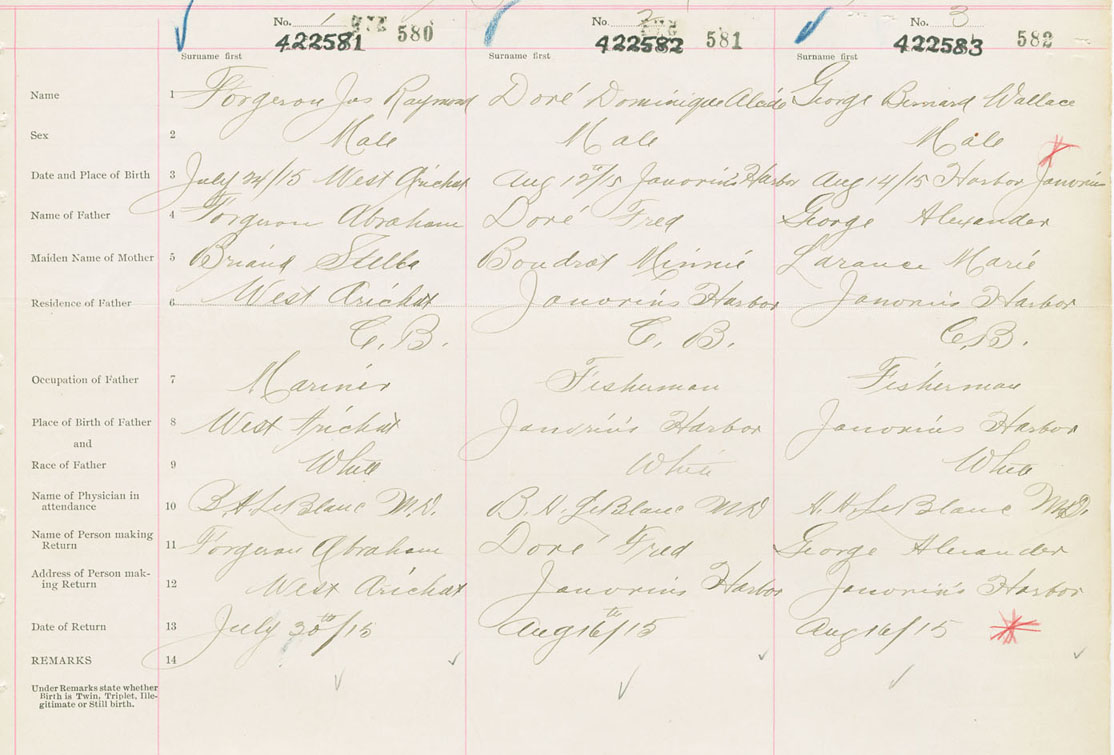 No. 1 580 No. 2 581 No. 3 582
422581 422582 422583
Surname first Surname first Surname first
Name 1 Forgeron Jas Raymond Doré Dominique Alcide George Bernard Wallace
Sex 2 Male Male Male
Date and Place of Birth 3 July 24/15 West Arichat Aug 12th/15 Janvrin's Harbor Aug 14/15 Harbor Janvrin
Name of Father 4 Forgeron Abraham Doré Fred George Alexander
Maiden Name of Mother 5 Briand Stella Boudrot Minnie Larance Marie
Residence of Father 6 West Arichat Janvrins Harbor Janvrins Harbor
C.B. C. B. C.B.
Occupation of Father 7 Mariner Fisherman Fisherman
Place of Birth of Father 8 West Arichat Janvrin's Harbor Janvrin's Harbor
and
Race of Father 9 White White White
Name of Physician in
attendance 10 B.H. LeBlanc M.D. B. H. LeBlanc MD H. H. LeBlanc M.D.
Name of Person making
Return 11 Forgeron Abraham Doré Fred George Alexander
Address of Person mak-
ing Return 12 West Arichat Janvrins Harbor Janvrin's Harbor
Date of Return 13 July 30th/15 Aug 16th/15 Aug 16/15
REMARKS 14
Under Remarks state whether
Birth is Twin, Triplet, Ille-
gitimate or Still birth.